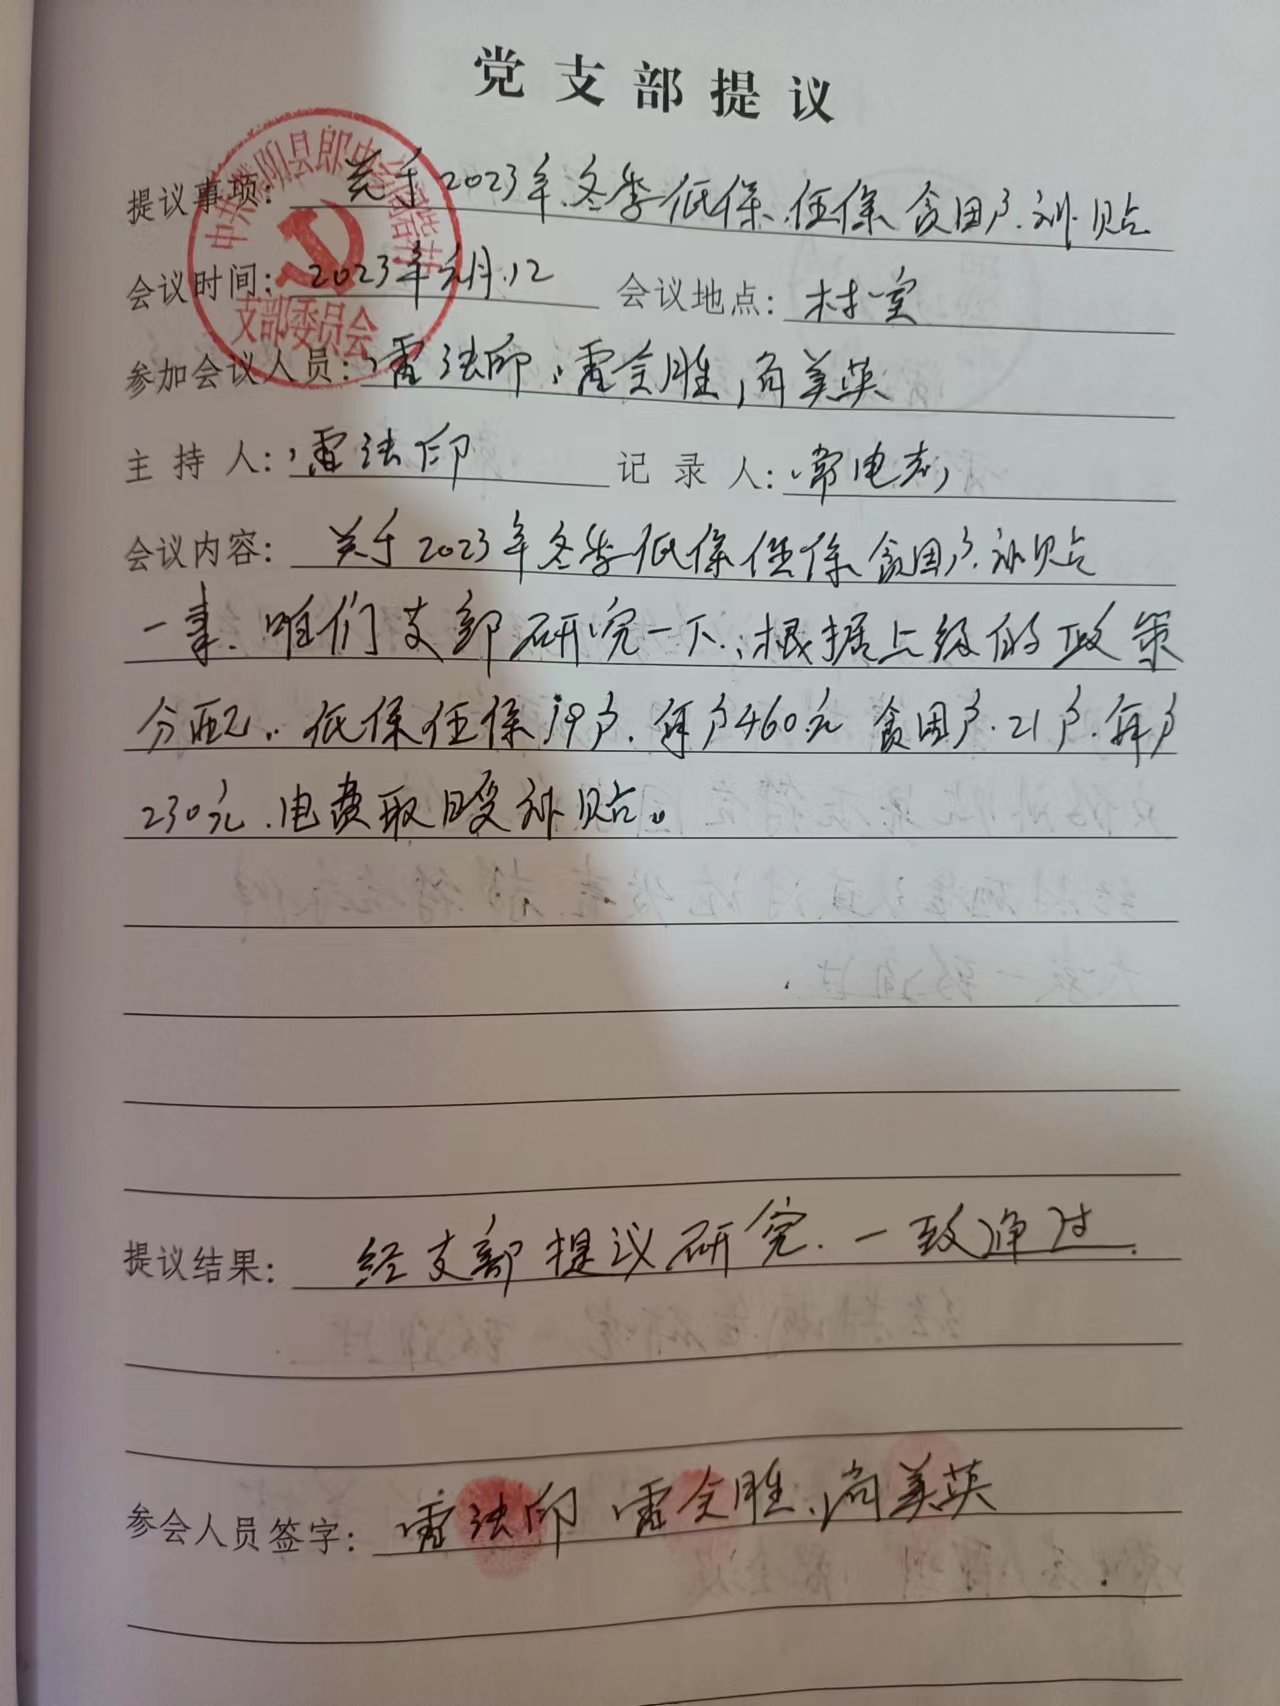 党支部提议
提议事项：关于2023年.冬季低保.伍保贫困户.补贴
会议时间：2023年元月.12 会议地点：村室
参加会议人员：雷法印，雷全胜，尚美英
主持人：雷法印 记录人：常电志
会议内容：关于2023年冬季低保伍保贫困户.补贴
一事.咱们支部研究一下.；根据上级的政策
分配.低保伍保19户.每户460元 贫困户.21户.每户
230元.电费取暖补贴。
提议结果：经支部提议研究.一致通过.
参会人员签字：雷法印 雷全胜.尚美英
支部委员会